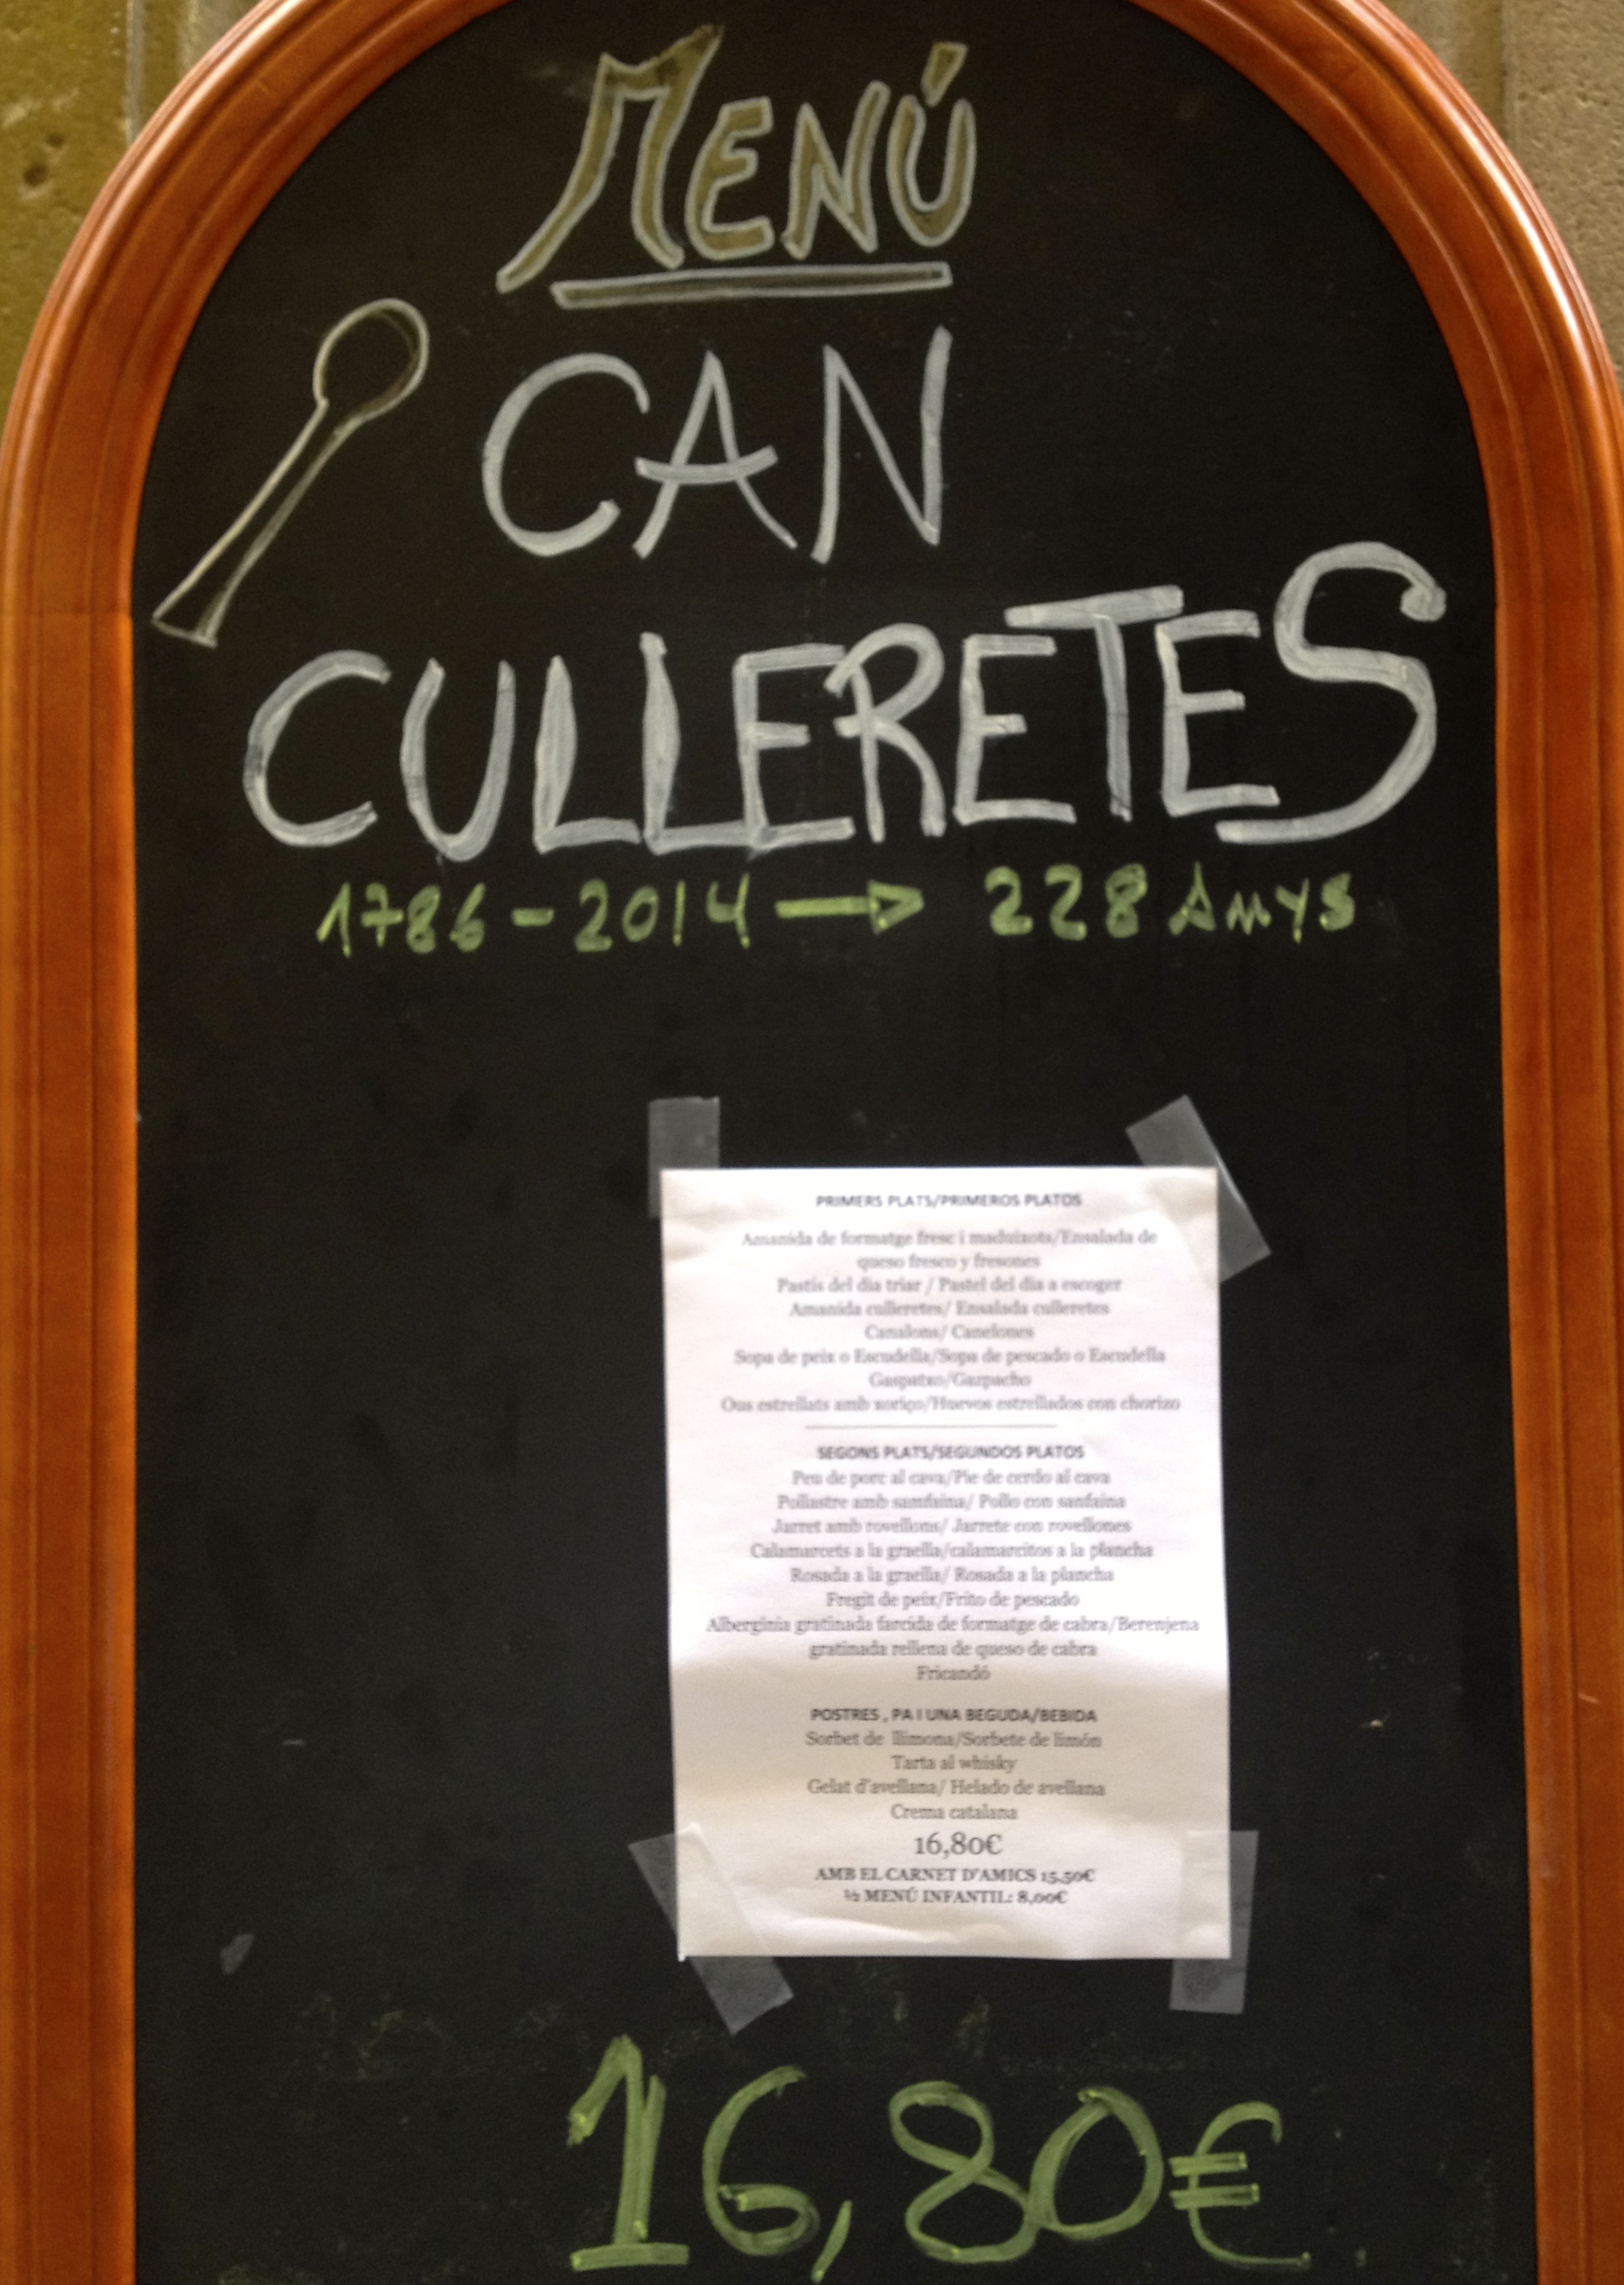 MENÚ
CAN
CULLERETES
1786-2014 → 228 ANYS
PRIMERS PLATS/PRIMEROS PLATOS
Amanida de formatge fresc i maduixots/Ensalada de
queso fresco y fresones
Pastís del dia triar / Pastel del dia a escoger
Amanida culleretes/ Ensalada culleretes
Canalons/ Canelones
Sopa de peix o Escudella/Sopa de pescado o Escudella
Gaspatxo/Gazpacho
Ous estrellats amb xoriço/Huevos estrellados con chorizo
SEGONS PLATS/SEGUNDOS PLATOS
Peu de porc al cava/Pie de cerdo al cava
Pollastre amb samfaina/ Pollo con sanfaina
Jarret amb rovellons/ Jarrete con rovellones
Calamarcets a la graella/calamarcitos a la plancha
Rosada a la graella/ Rosada a la plancha
Fregit de peix/Frito de pescado
Albergínia gratinada farcida de formatge de cabra/Berenjena
gratinada rellena de queso de cabra
Fricandó
POSTRES , PA I UNA BEGUDA/BEBIDA
Sorbet de llimona/Sorbete de limón
Tarta al whisky
Gelat d'avellana/ Helado de avellana
Crema catalana
16,80€
AMB EL CARNET D'AMICS 15,50€
½ MENÚ INFANTIL: 8,00€
16,80€